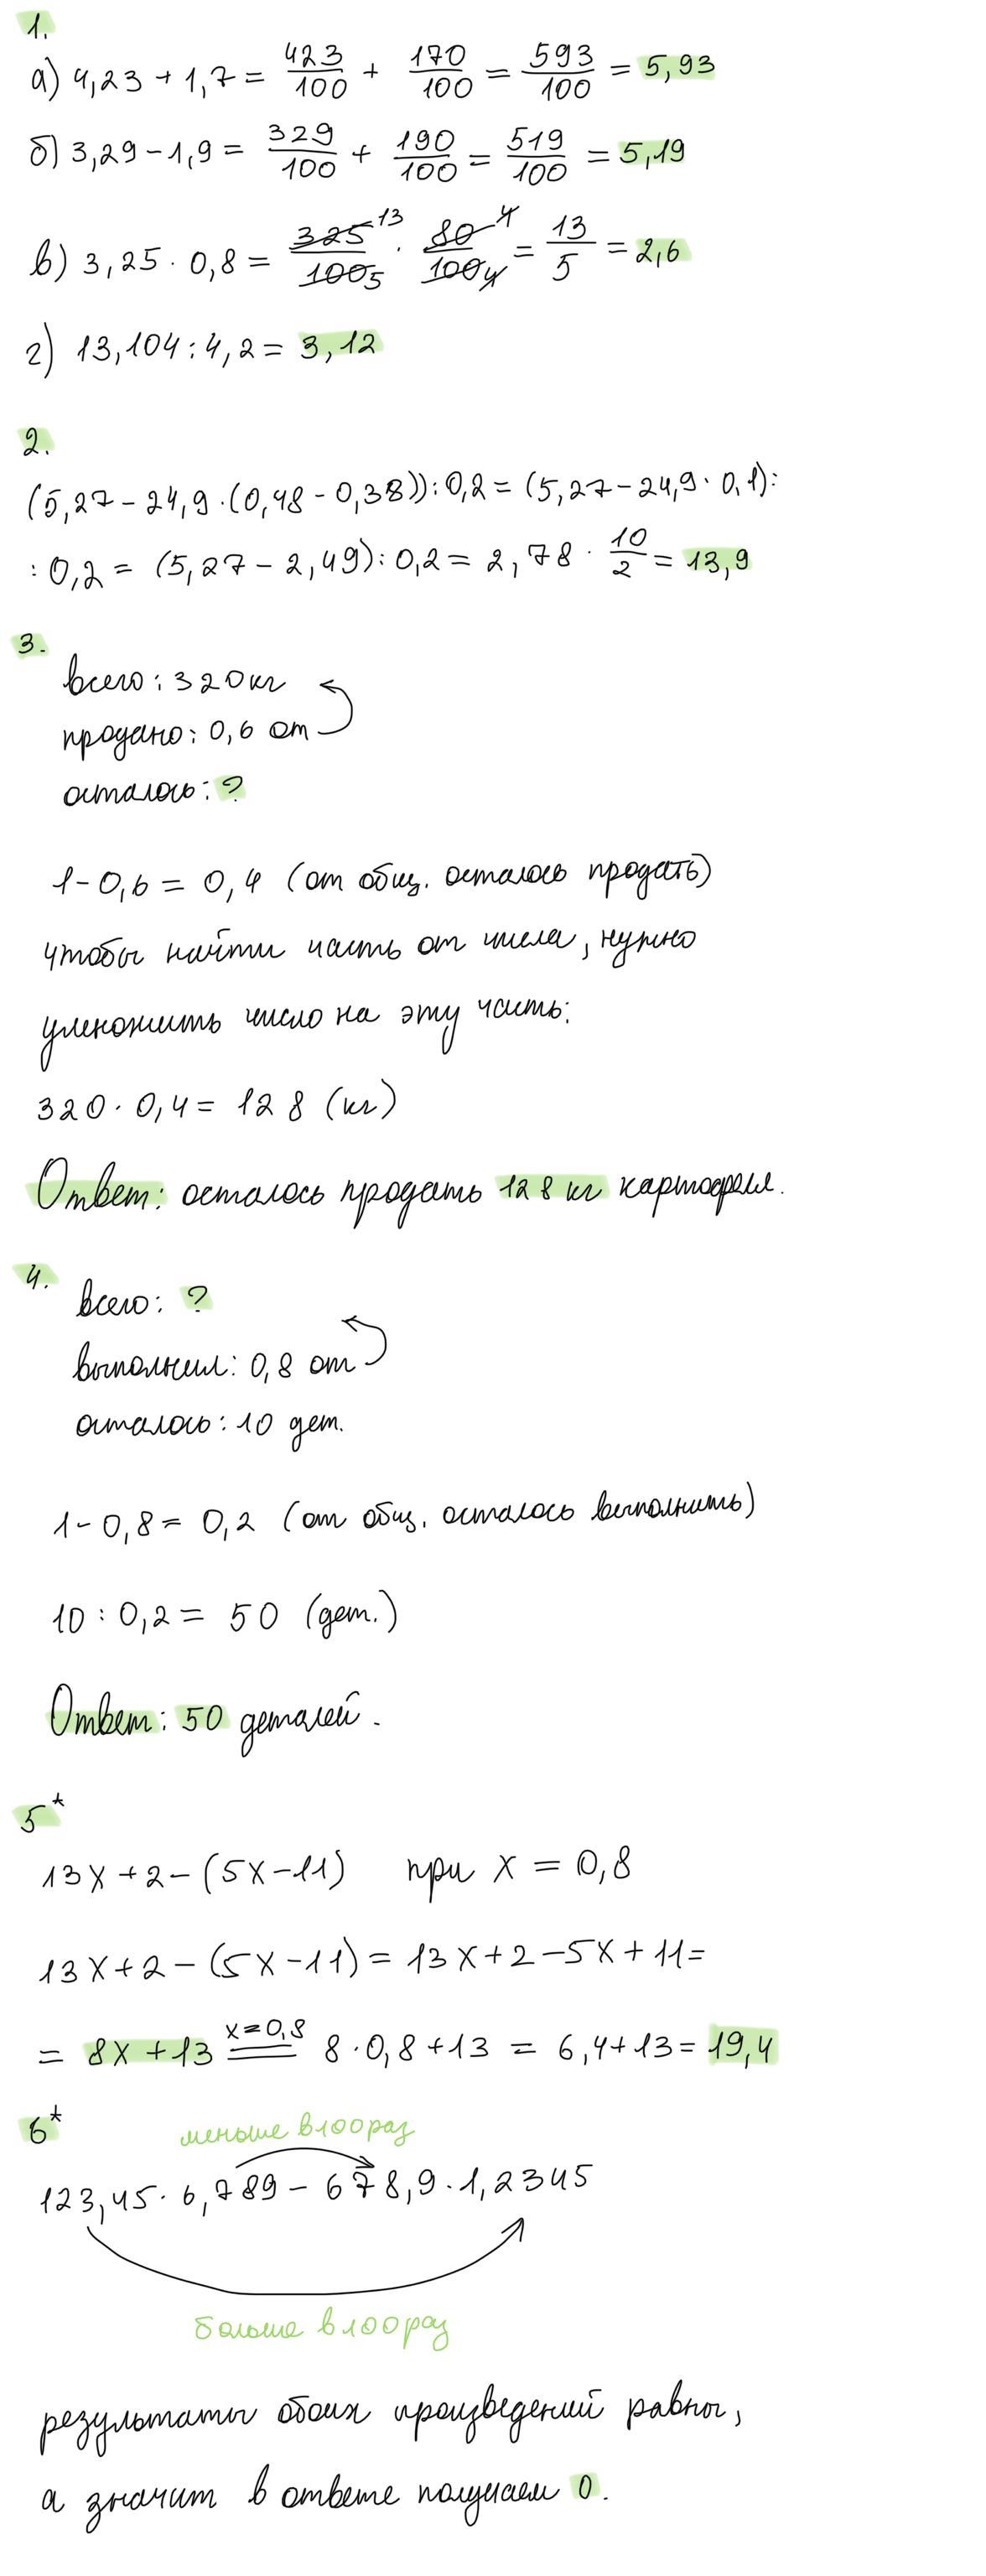 1.
а) 4,23 + 1,7 = 423/100 + 170/100 = 593/100 = 5,93
б) 3,29 - 1,9 = 329/100 + 190/100 = 519/100 = 5,19
в) 3,25 · 0,8 = 325 13/100 5 · 80 4/100 4 = 13/5 = 2,6
г) 13,104 : 4,2 = 3,12
2.
(5,27 - 24,9 · (0,48 - 0,38)) : 0,2 = (5,27 - 24,9 · 0,1) :
: 0,2 = (5,27 - 2,49) : 0,2 = 2,78 · 10/2 = 13,9
3.
всего: 320 кг
продано: 0,6 от
осталось: ?
1 - 0,6 = 0,4 (от общ. осталось продать)
чтобы найти часть от числа, нужно
умножить число на эту часть:
320 · 0,4 = 128 (кг)
Ответ: осталось продать 128 кг картофеля.
4.
всего: ?
выполнил: 0,8 от
осталось: 10 дет.
1 - 0,8 = 0,2 (от общ. осталось выполнить)
10 : 0,2 = 50 (дет.)
Ответ: 50 деталей.
5*
13x + 2 - (5x - 11) при x = 0,8
13x + 2 - (5x - 11) = 13x + 2 - 5x + 11 =
= 8x + 13 x=0,8 = 8 · 0,8 + 13 = 6,4 + 13 = 19,4
6*
меньше в 100 раз
123,45 · 6,789 - 678,9 · 1,2345
больше в 100 раз
результаты обоих произведений равны,
а значит в ответе получаем 0.